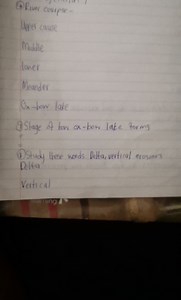 River
Upper course
Middle
Lower
Meander
Ox-bow lake
Stage of how ox-bow lake forms
Study these words: Delta, vertical
Delta
Vertical